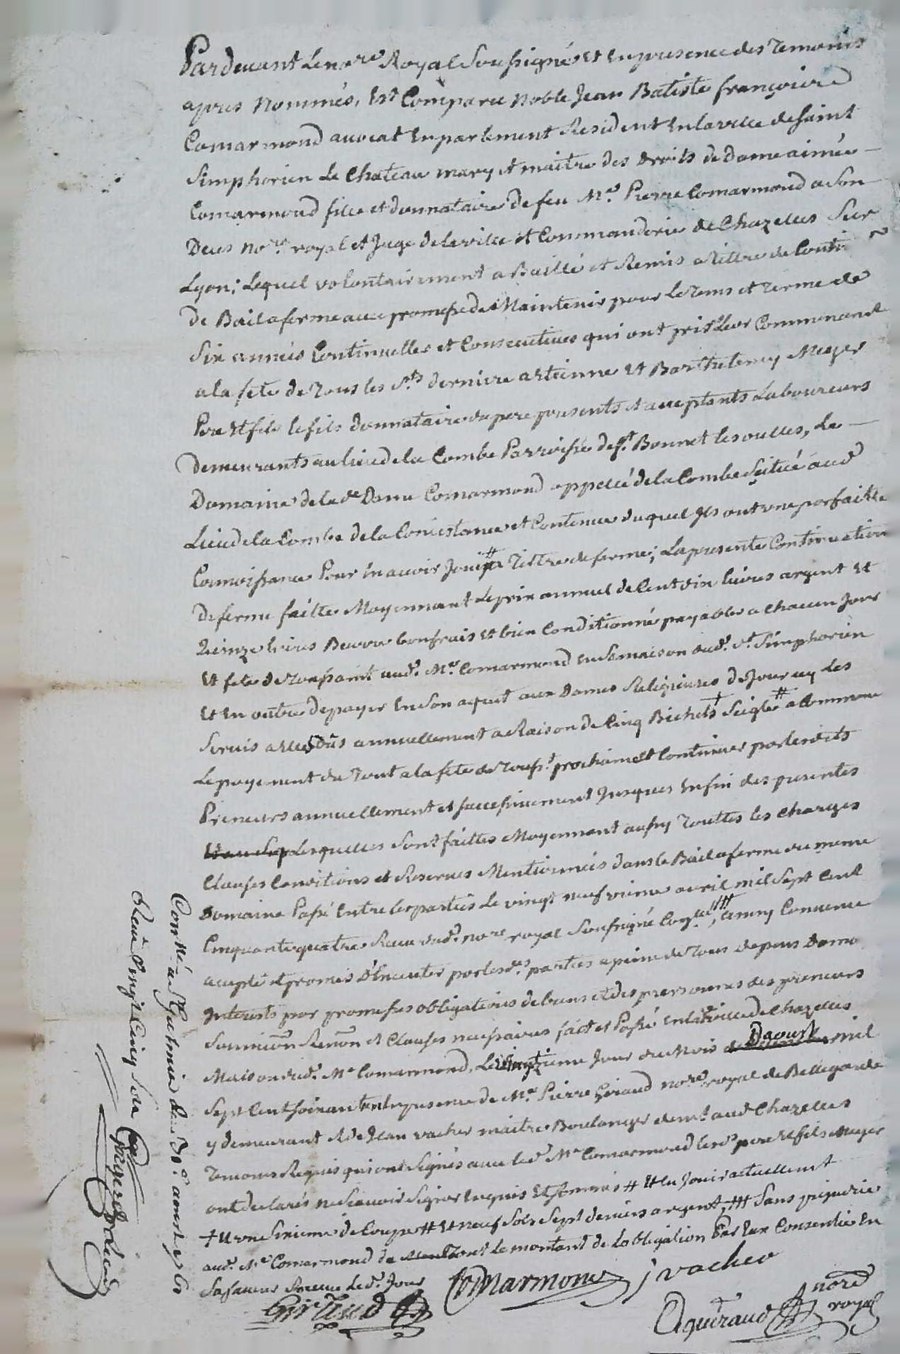 Pardevant Le nore Royal Soussigné Et En presence des Temoins
apres Nommés, Est Comparu Noble Jean Batiste françois
Comarmond avocat En parlement Resident En la ville de Saint
Simphorien Le Chateau mary et maitre des droits de dame aimée
Comarmond fille et donnataire de feu Me Pierre Comarmond a Son
Deces nore royal et Juge de la ville et Commanderie de Chazelles Sur
Lyon; Lequel volontairement a Baillé et Remis a titre de Conti
de Bail a ferme avec promesse de Maintenir pour Le Tems et Terme de
Six années Continuelles et Consecutives qui ont pris Leur Commencement
a la fete de Tous les Sts derniere a Etienne Et Barthelemy Meyer
Pere Et fils le fils donnataire du pere presents et acceptants Laboureurs
Demeurants au lieu de la Combe Parroisse de St Bonnet les oulles, Le
Domaine de lade Dame Comarmond appellé de la Combe Scitué aud
Lieu de la Combe de la Consistance et Contenue duquel Ils ont une parfaitte
Connoissance Pour En avoir Joui # a Tittre de ferme; La presente Continuation
De ferme faitte Moyennant Le prix annuel de Cent dix livres argent Et
Quinze livres Beurre bon frais Et bien Conditionné payables a Chacun Jour
Et fete de Toussaint aud. Me Comarmond En Sa maison aud. St Simphorien
Et En outre de payer En Son acquit aux Dames Religieuses de Jourcey Les
Servis a elles Dûs annuellement a Raison de Cinq Bichets + Seigle # a Commencer
Le payement du Tout a la fete de Touss.t prochaine Et Continuer par lesdits
Preneurs annuellement et successivement Jusques En fin des presentes
Lesquelles Sont faittes Moyennant aussy Touttes les Charges
Clauses Conditions et Reserves Mentionnées dans le Bail a ferme du meme
Domaine Passé Entre les parties Le vingt neuvieme avril mil Sept Cent
Cinquante quatre Receu dud. nore royal Soussigné Ainsy Convenu
accepté et promis D'Executer par lesd. parties a peine de Tous depens Domo
Interests par promesses obligations de biens et des personnes des preneurs
Soumion Renon et Clauses necessaires fait et Passé En la ville de Chazelles
Maison dud. Me Comarmond, Le vingtieme Jour du Mois Daoust mil
Sept Cent Soixante En presence de Me Pierre Giraud nore royal de Bellegarde
y demeurant et de Jean vacher maitre Boulanger demt aud. Chazelles
Temoins Requis qui ont Signés avec led. Me Comarmond Les pere Et fils Meyer
ont declarés ne Scavoir Signer Enquis Et Sommés # Et En Jouir actuellement
+ une Sixieme de Coupe # Et neuf Sols Sept deniers argent, ## Sans prejudice
aud. Me Comarmond de le montant de la obligation Par Eux Consentie En
Sa faveur Receue led. Jour
Comarmond J vacher
Giraud
nore royal
Con.lé a St Galmier
Receu vingt Cinq Sols